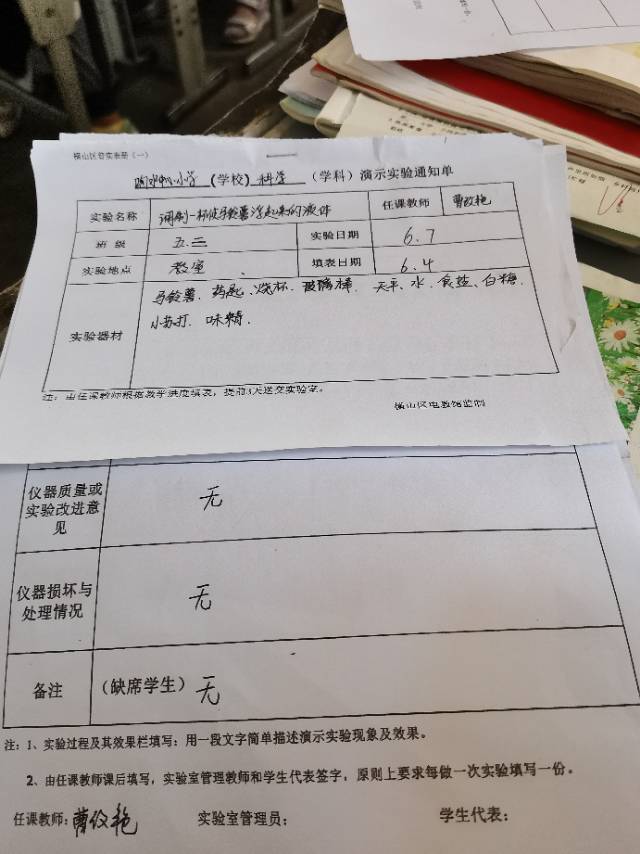 横山区普实表册（一）
中心小学（学校）科学（学科）演示实验通知单
实验名称 调制一杯使马铃薯浮起来的液体 任课教师 曹改艳
班 级 五.三 实验日期 6.7
实验地点 教室 填表日期 6.4
实验器材 马铃薯. 药匙. 烧杯. 玻璃棒. 天平、水. 食盐、白糖.
小苏打. 味精.
注：由任课教师根据教学进度填表，提前3天送交实验室。
横山区电教馆监制
仪器质量或
实验改进意 无
见
仪器损坏与
处理情况 无
备注 （缺席学生）无
注：1、实验过程及其效果栏填写：用一段文字简单描述演示实验现象及效果。
2、由任课教师课后填写，实验室管理教师和学生代表签字，原则上要求每做一次实验填写一份。
任课教师：曹改艳 实验室管理员： 学生代表：